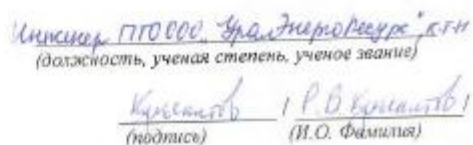 Инженер ПТО ООО "УралЭнергоРесурс", к.т.н
(должность, ученая степень, ученое звание)
/ Р.В /
(подпись) (И.О. Фамилия)